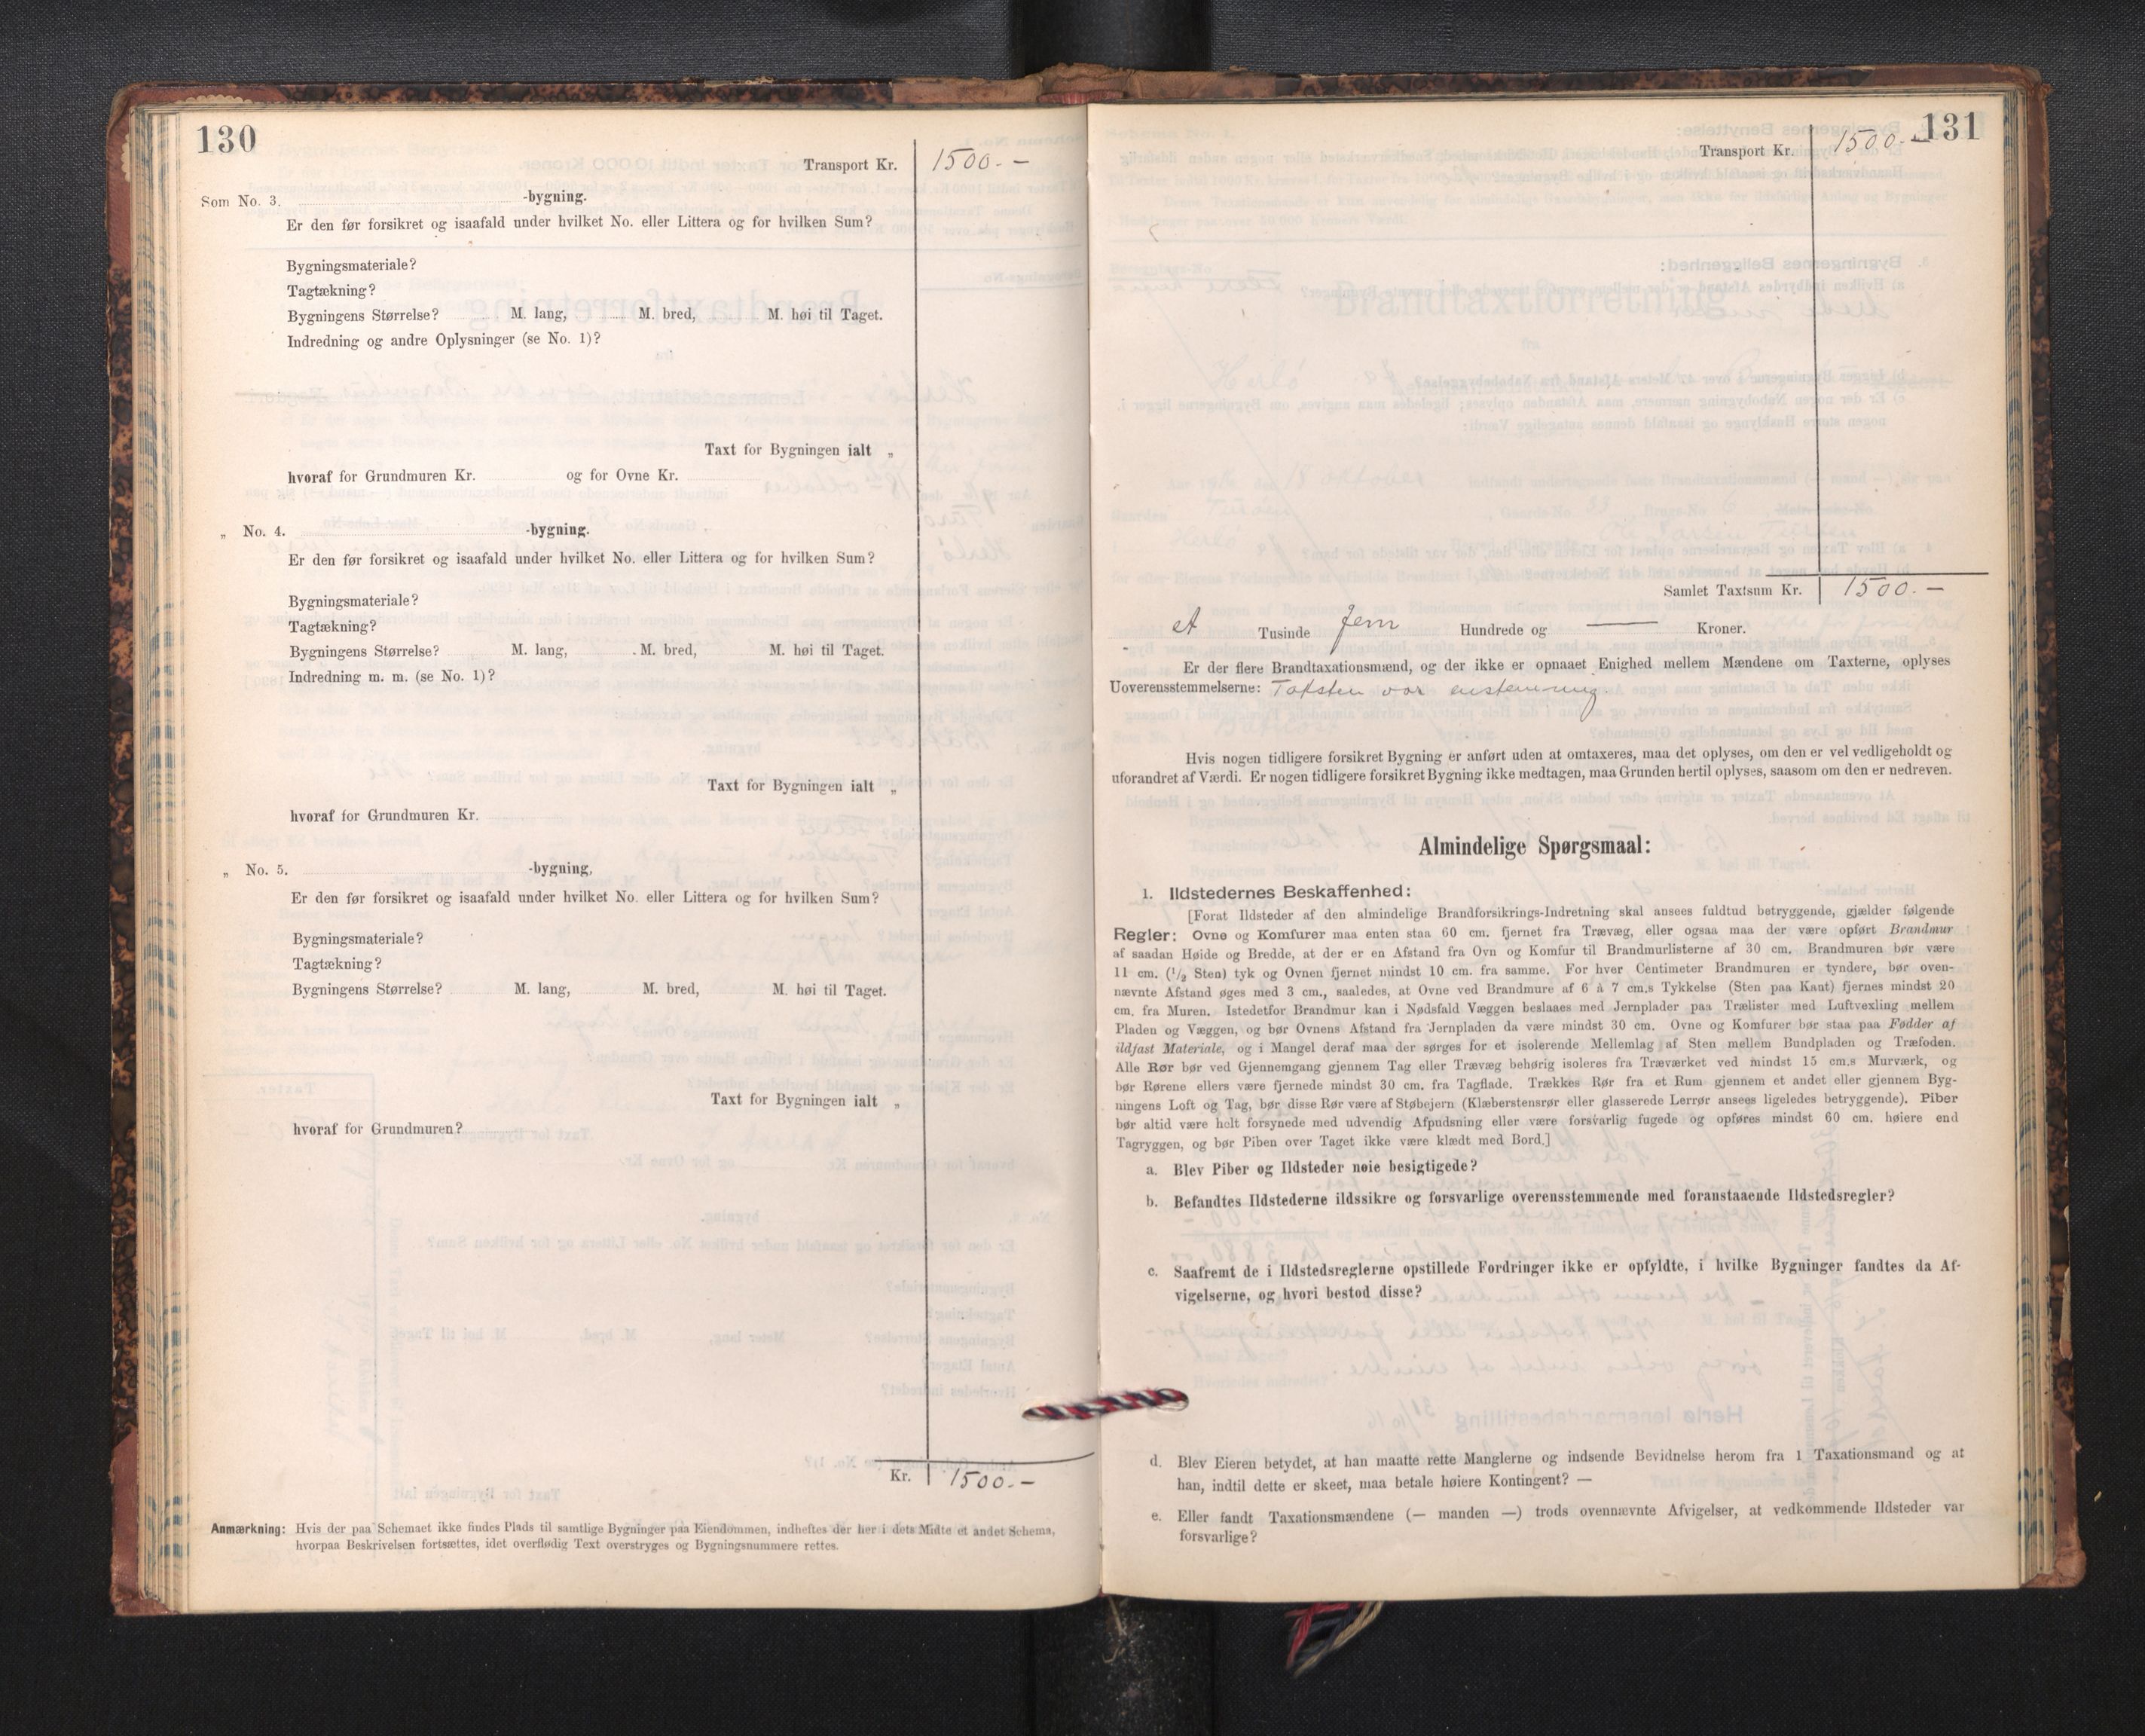 130
Transport Kr. 1500.-
Som No. 3. -bygning.
Er den før forsikret og isaafald under hvilket No. eller Littera og for hvilken Sum?
Bygningsmateriale?
Tagtækning?
Bygningens Størrelse? M. lang, M. bred, M. høi til Taget.
Indredning og andre Oplysninger (se No. 1)?
Taxt for Bygningen ialt „
hvoraf for Grundmuren Kr. og for Ovne Kr.
„ No. 4. -bygning.
Er den før forsikret og isaafald under hvilket No. eller Littera og for hvilken Sum?
Bygningsmateriale?
Tagtækning?
Bygningens Størrelse? M. lang, M. bred, M. høi til Taget.
Indredning m. m. (se No. 1)?
Taxt for Bygningen ialt „
hvoraf for Grundmuren Kr.
„ No. 5. -bygning,
Er den før forsikret og isaafald under hvilket No. eller Littera og for hvilken Sum?
Bygningsmateriale?
Tagtækning?
Bygningens Størrelse? M. lang, M. bred, M. høi til Taget.
Taxt for Bygningen ialt „
hvoraf for Grundmuren?
Kr. 1500.-
Anmærkning: Hvis der paa Schemaet ikke findes Plads til samtlige Bygninger paa Eiendommen, indheftes der her i dets Midte et andet Schema,
hvorpaa Beskrivelsen fortsættes, idet overflødig Text overstryges og Bygningsnummere rettes.
131
Transport Kr. 1500.-
Samlet Taxtsum Kr. 1500.-
et Tusinde fem Hundrede og — Kroner.
Er der flere Brandtaxationsmænd, og der ikke er opnaaet Enighed mellem Mændene om Taxterne, oplyses
Uoverensstemmelserne: Taksten var enstemmig.
Hvis nogen tidligere forsikret Bygning er anført uden at omtaxeres, maa det oplyses, om den er vel vedligeholdt og
uforandret af Værdi. Er nogen tidligere forsikret Bygning ikke medtagen, maa Grunden hertil oplyses, saasom om den er nedreven.
Almindelige Spørgsmaal:
1. Ildstedernes Beskaffenhed:
[Forat Ildsteder af den almindelige Brandforsikrings-Indretning skal ansees fuldtud betryggende, gjælder følgende
Regler: Ovne og Komfurer maa enten staa 60 cm. fjernet fra Trævæg, eller ogsaa maa der være opført Brandmur
af saadan Høide og Bredde, at der er en Afstand fra Ovn og Komfur til Brandmurlisterne af 30 cm. Brandmuren bør være
11 cm. (1/2 Sten) tyk og Ovnen fjernet mindst 10 cm. fra samme. For hver Centimeter Brandmuren er tyndere, bør oven-
nævnte Afstand øges med 3 cm., saaledes, at Ovne ved Brandmure af 6 à 7 cm.s Tykkelse (Sten paa Kant) fjernes mindst 20
cm. fra Muren. Istedetfor Brandmur kan i Nødsfald Væggen beslaaes med Jernplader paa Trælister med Luftvexling mellem
Pladen og Væggen, og bør Ovnens Afstand fra Jernpladen da være mindst 30 cm. Ovne og Komfurer bør staa paa Fødder af
ildfast Materiale, og i Mangel deraf maa der sørges for et isolerende Mellemlag af Sten mellem Bundpladen og Træfoden.
Alle Rør bør ved Gjennemgang gjennem Tag eller Trævæg behørig isoleres fra Træværket ved mindst 15 cm.s Murværk, og
bør Rørene ellers være fjernede mindst 30 cm. fra Tagflade. Trækkes Rør fra et Rum gjennem et andet eller gjennem Byg-
ningens Loft og Tag, bør disse Rør være af Støbejern (Klæberstensrør eller glasserede Lerrør ansees ligeledes betryggende). Piber
bør altid være helt forsynede med udvendig Afpudsning eller være forsvarlig fugede og opføres mindst 60 cm. høiere end
Tagryggen, og bør Piben over Taget ikke være klædt med Bord.]
a. Blev Piber og Ildsteder nøie besigtigede?
b. Befandtes Ildstederne ildssikre og forsvarlige overensstemmende med foranstaaende Ildstedsregler?
c. Saafremt de i Ildstedsreglerne opstillede Fordringer ikke er opfyldte, i hvilke Bygninger fandtes da Af-
vigelserne, og hvori bestod disse?
d. Blev Eieren betydet, at han maatte rette Manglerne og indsende Bevidnelse herom fra 1 Taxationsmand og at
han, indtil dette er skeet, maa betale høiere Kontingent? —
e. Eller fandt Taxationsmændene (— manden —) trods ovennævnte Afvigelser, at vedkommende Ildsteder var
forsvarlige?